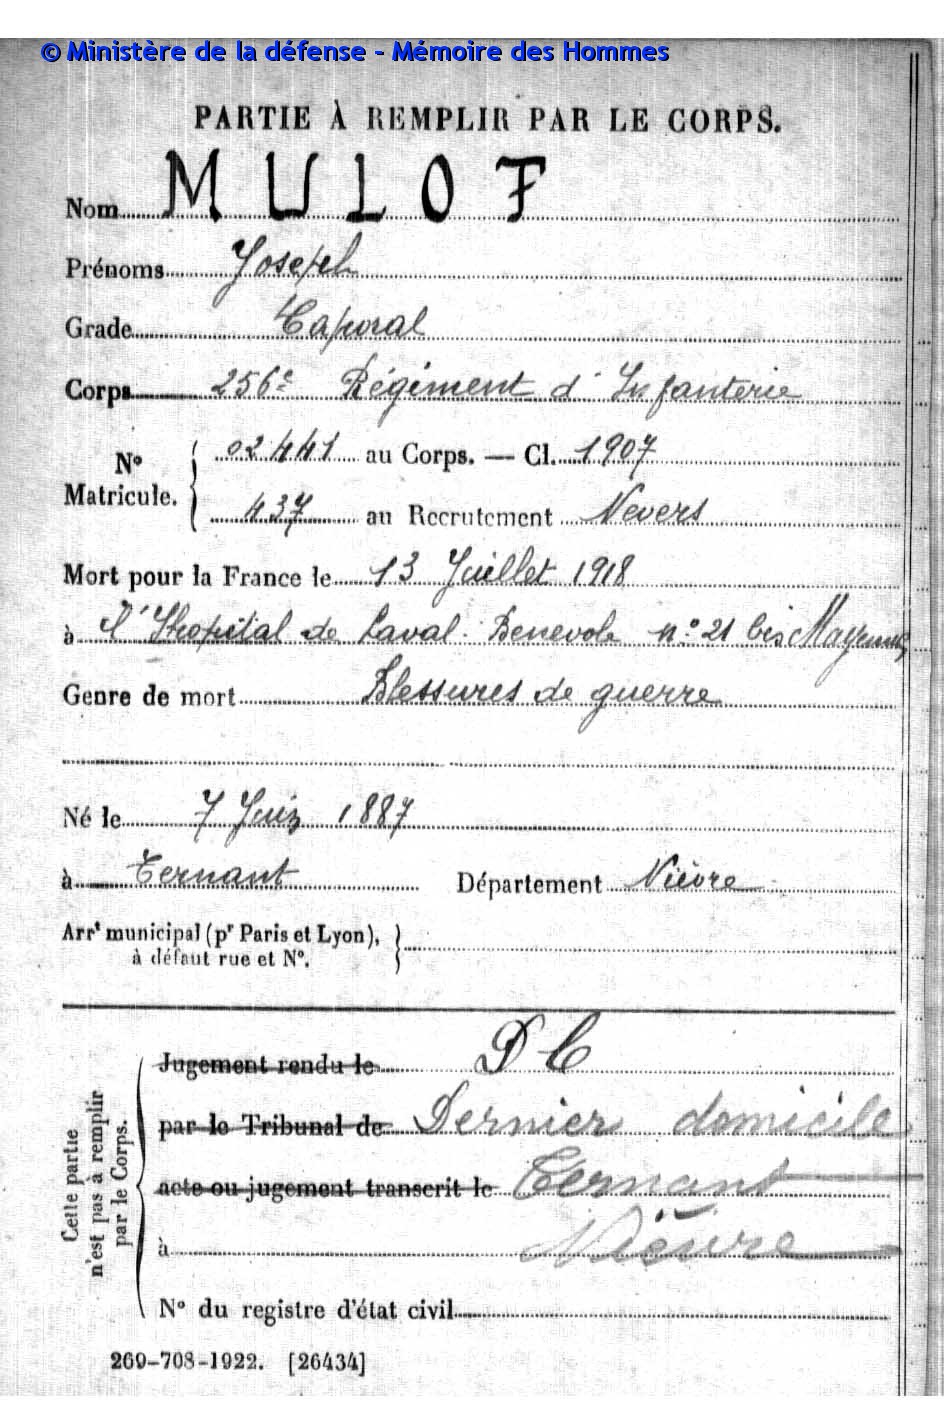 © Ministère de la défense - Mémoire des Hommes
PARTIE À REMPLIR PAR LE CORPS.
Nom MULOT
Prénoms Joseph
Grade Caporal
Corps 256e Régiment d'Infanterie
No Matricule. { 02441 au Corps. — Cl. 1907
437 au Recrutement Nevers
Mort pour la France le 13 Juillet 1918
à l'Hopital de Laval Benevole n° 21 bis Mayenne
Genre de mort Blessures de guerre
Né le 7 Juin 1887
à Ternant Département Nièvre
Arrt municipal (pr Paris et Lyon), }
à défaut rue et No.
Cette partie
n'est pas à remplir
par le Corps.
Jugement rendu le D C
par le Tribunal de Dernier domicile
acte ou jugement transcrit le Ternant
à Nièvre
No du registre d'état civil
269-708-1922. [26434]